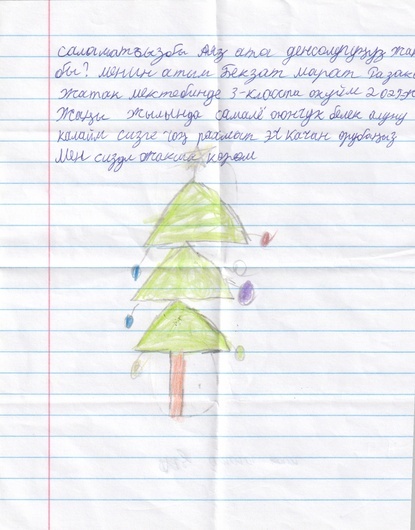 саламатсызбы Аяз ата денсолугуңуз жак
бы? менин атым Бекзат марат Разак
жатак мектебинде 3-класста окуйм 2022ж
Жаңы жылында самалё оюнчук белек алуну
калайм сизге чоң рахмат эч качан орубаңыз
Мен сизди жакшы көрөм